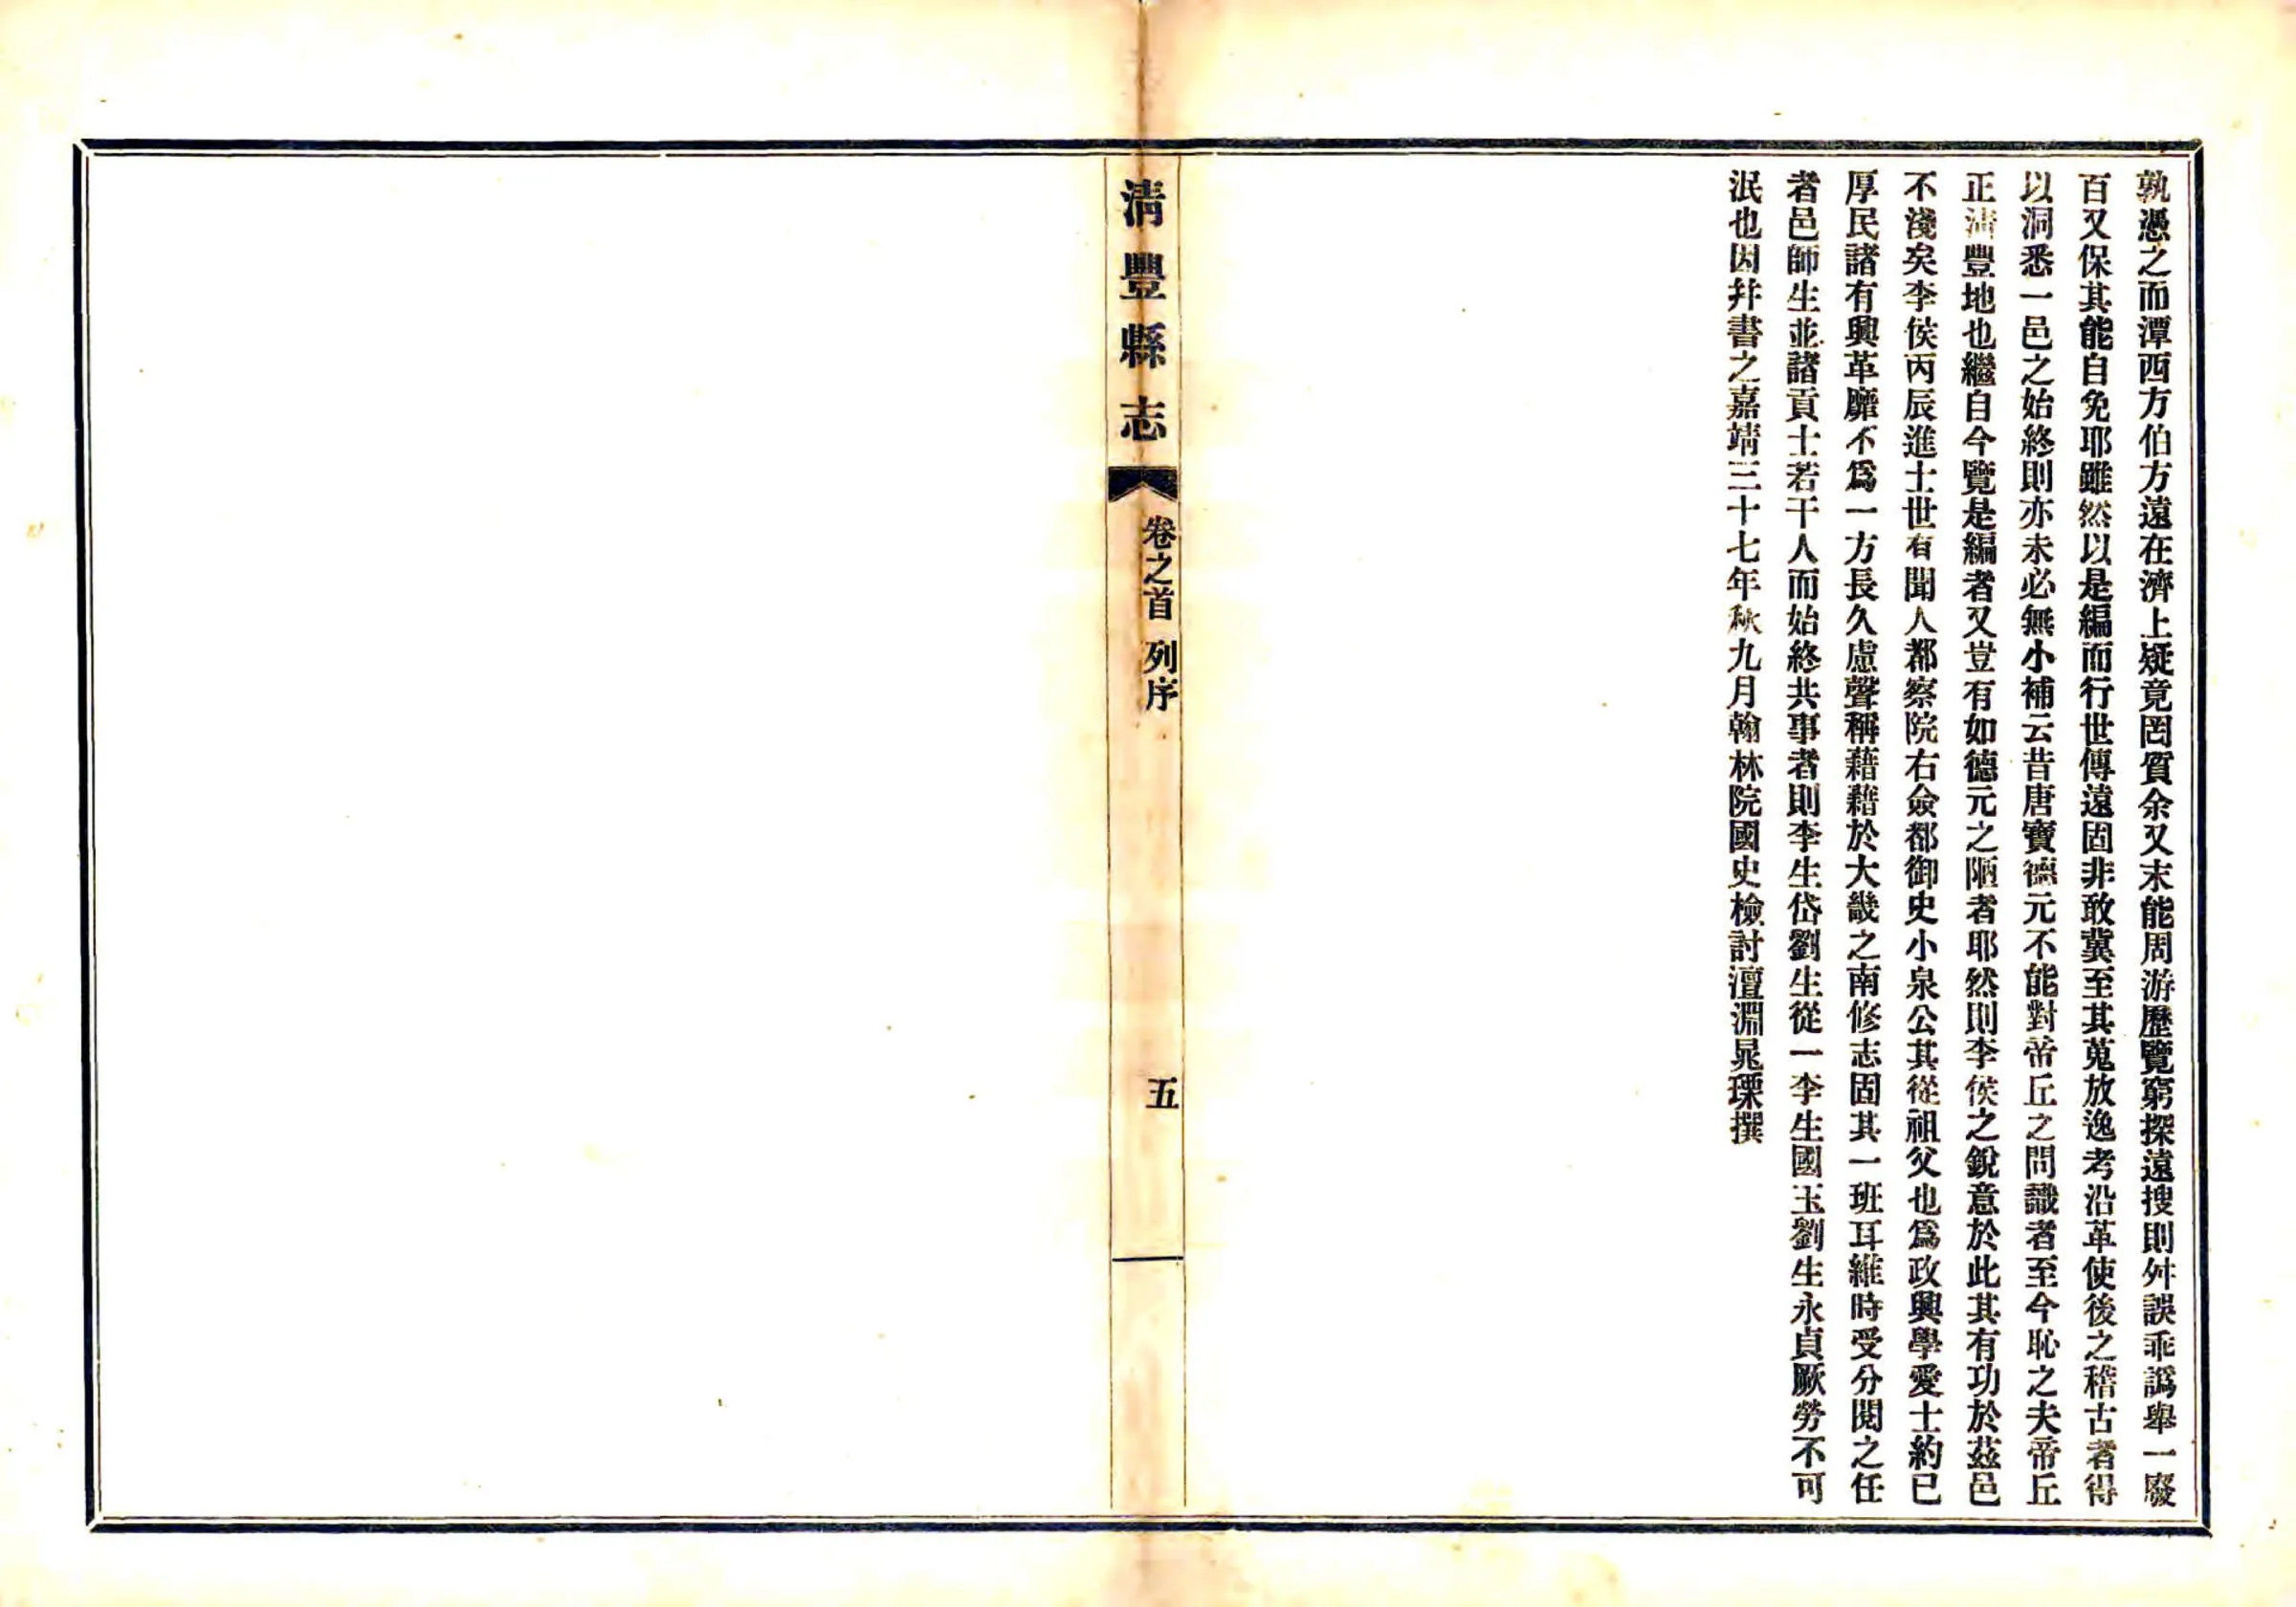 孰憑之而潭西方伯方遠在濟上疑竟罔質余又末能周游歷覽窮探遠搜則舛誤乖譌舉一廢
百又保其能自免耶雖然以是編而行世傳遠固非敢冀至其蒐放逸考沿革使後之稽古者得
以洞悉一邑之始終則亦未必無小補云昔唐竇德元不能對帝丘之問識者至今恥之夫帝丘
正清豐地也繼自今覽是編者又豈有如德元之陋者耶然則李侯之銳意於此其有功於茲邑
不淺矣李侯丙辰進士世有聞人都察院右僉都御史小泉公其從祖父也爲政興學愛士約已
厚民諸有興革靡不爲一方長久慮聲稱藉藉於大畿之南修志固其一班耳維時受分閱之任
者邑師生並諸貢士若干人而始終共事者則李生岱劉生從一李生國玉劉生永貞厥勞不可
泯也因并書之嘉靖三十七年秋九月翰林院國史檢討澶淵晁瑮撰
清豐縣志
卷之首 列序
五